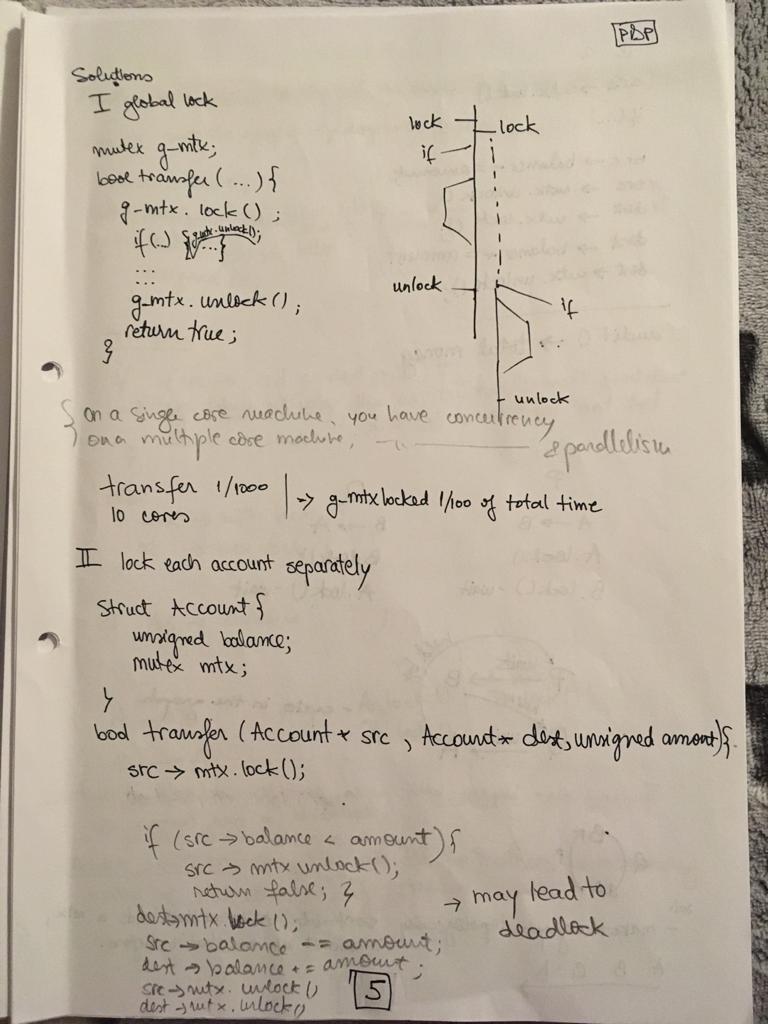 PDP
Solutions
I global lock
mutex g-mtx;
bool transfer (...) {
g-mtx. lock() ;
if(..) {g-mtx.unlock(); ...}
...
...
g-mtx. unlock() ;
return true ;
}
lock
lock
if
unlock
if
...
unlock
{ on a single core machine, you have concurrency
on a multiple core machine, —"— & parallelism
transfer 1/1000
10 cores
=> g-mtx locked 1/100 of total time
II lock each account separately
Struct Account {
unsigned balance;
mutex mtx;
}
bool transfer (Account * src , Account * dest, unsigned amount) {
src → mtx.lock();
if (src → balance < amount) {
src → mtx unlock();
return false; }
dest→mtx. lock();
src → balance -= amount;
dest → balance += amount ;
src → mtx. unlock()
dest → mtx. unlock()
→ may lead to
deadlock
5